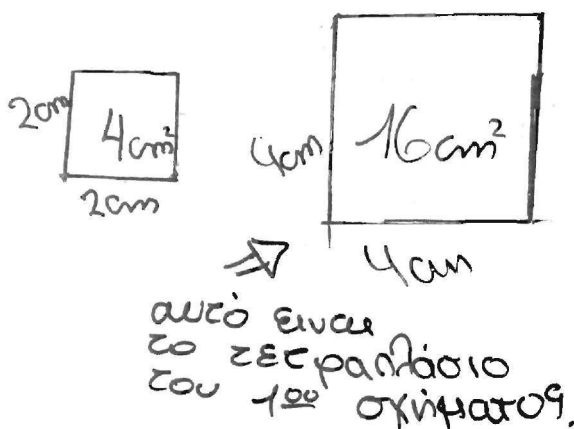 2cm
4cm²
2cm
4cm
16cm²
4cm
αυτό ειναι
το τετραπλάσιο
του 1ου σχήματος.